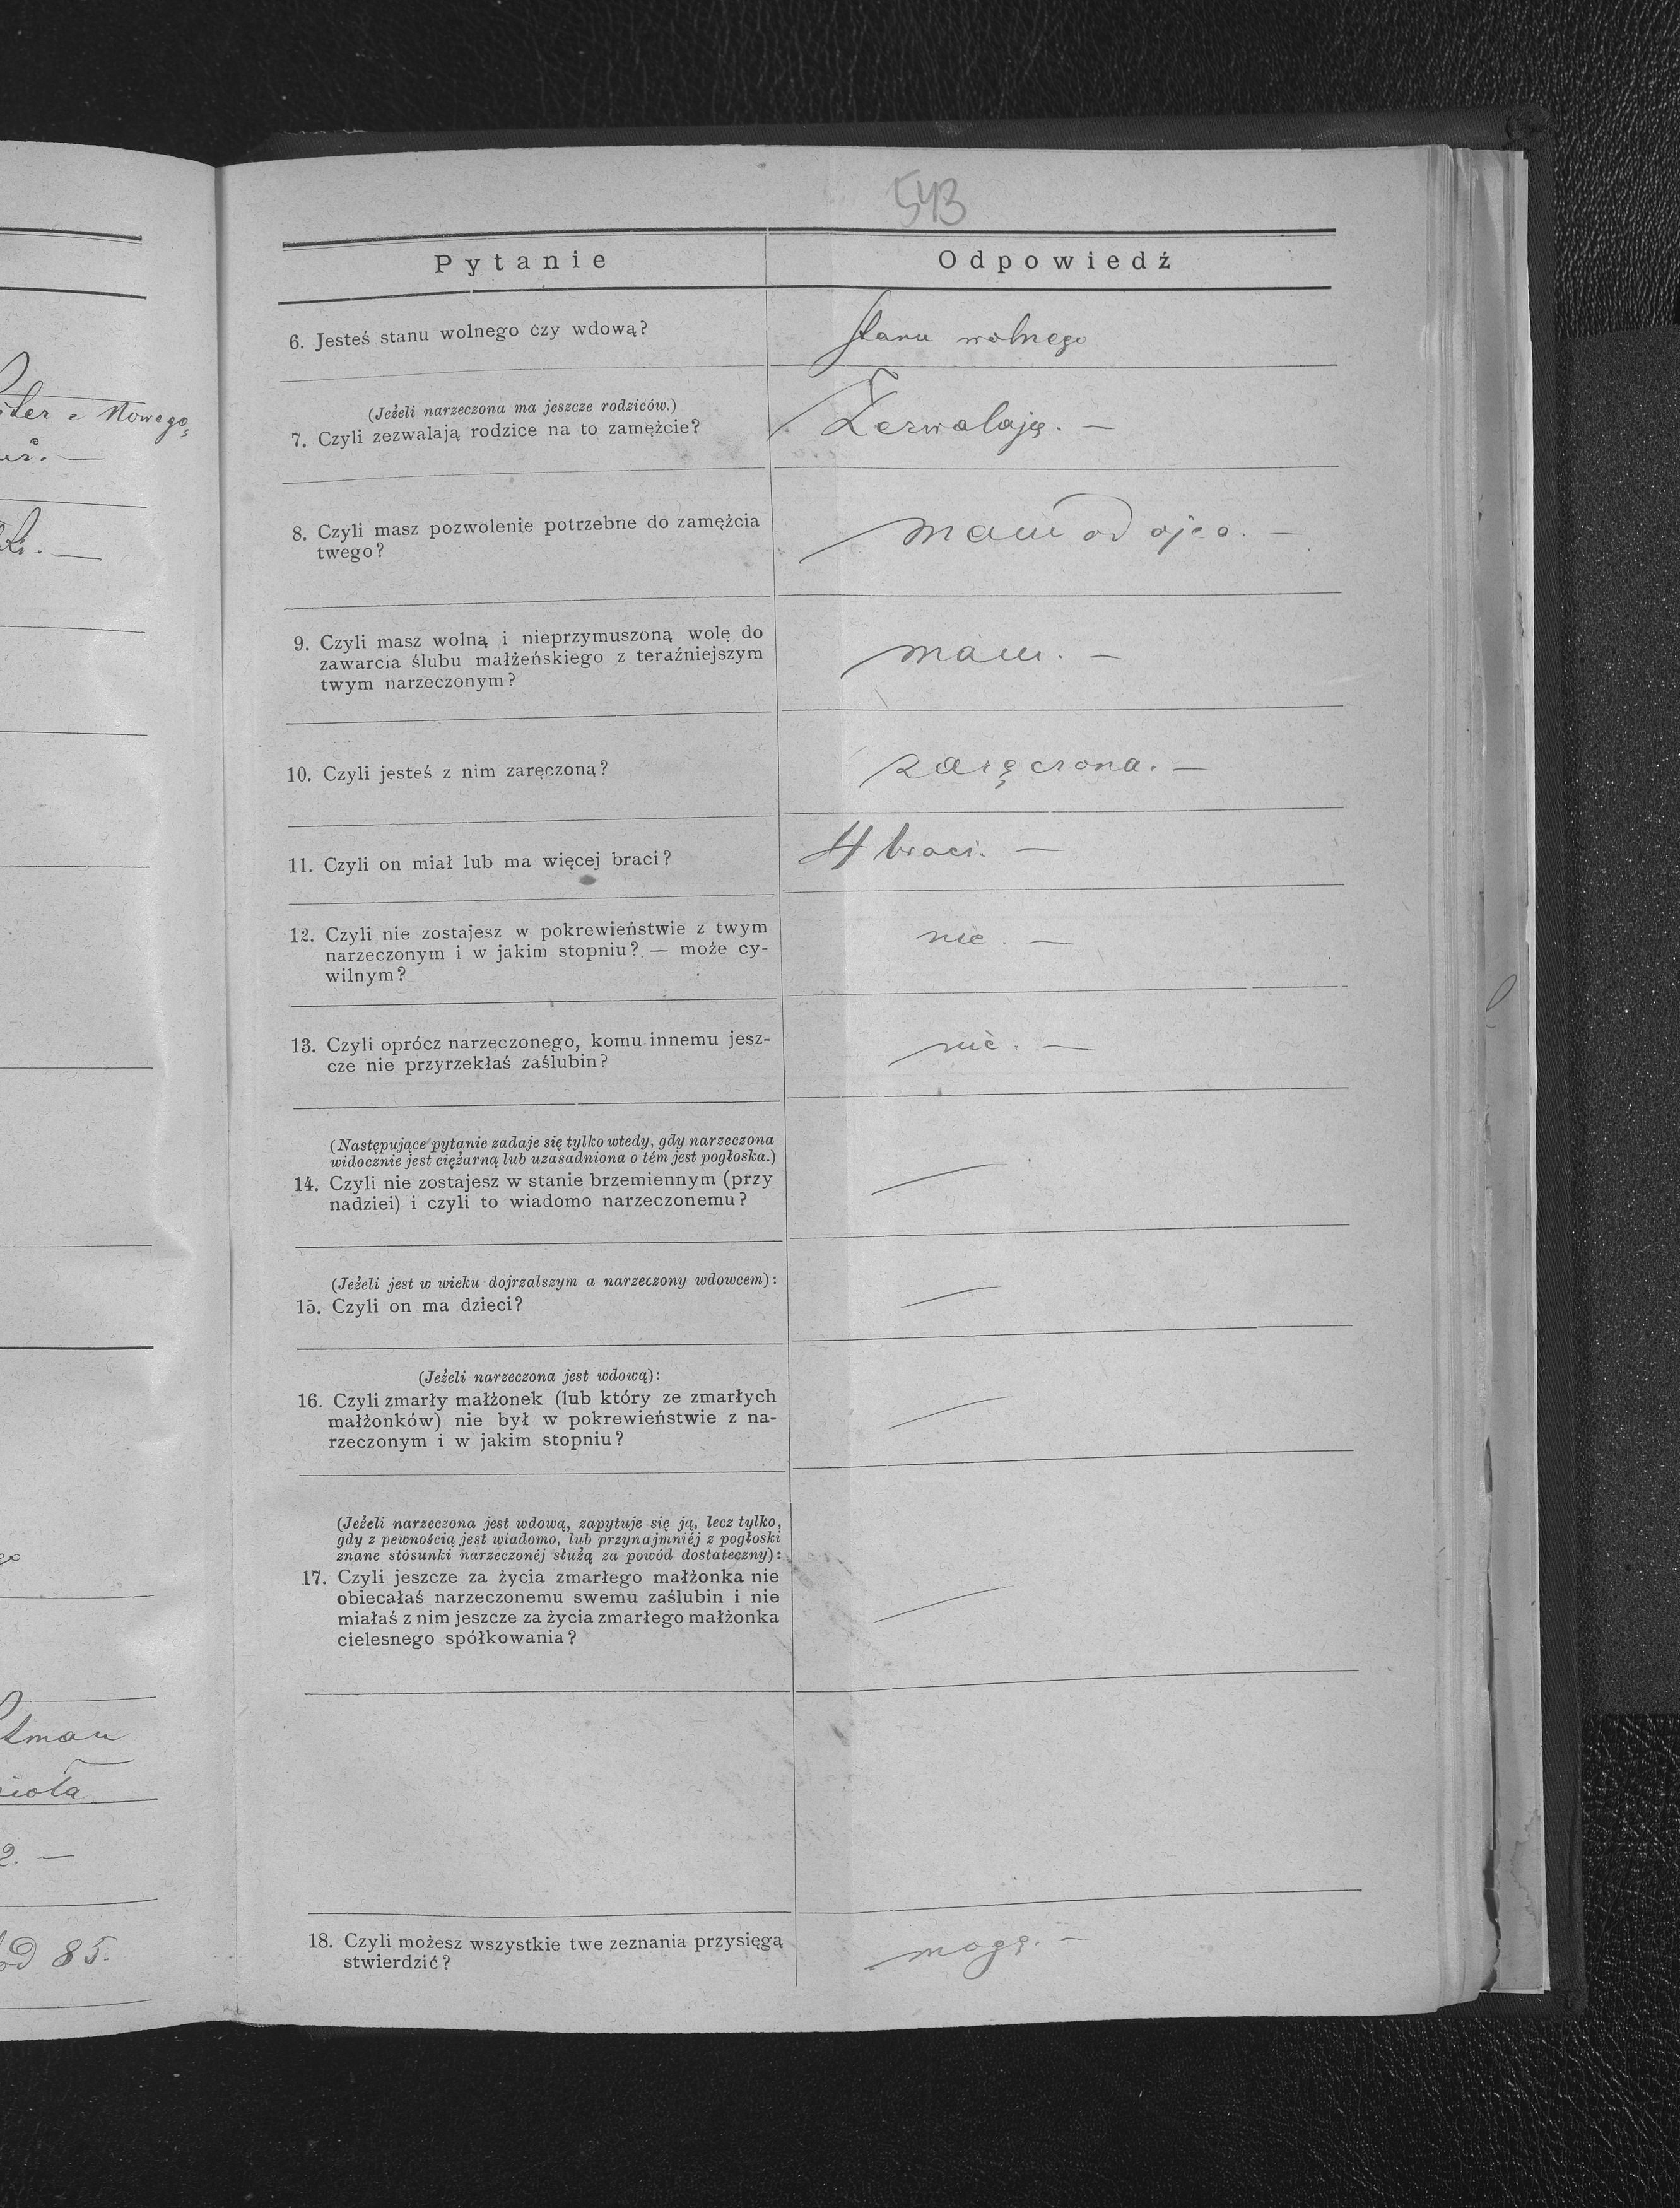 iter z Nowego
ki. —
go
tman
ioła
2. —
od 85.
543
Pytanie
Odpowiedź
6. Jesteś stanu wolnego czy wdową?
Stanu wolnego
(Jeżeli narzeczona ma jeszcze rodziców.)
7. Czyli zezwalają rodzice na to zamężcie?
Zezwalają. —
8. Czyli masz pozwolenie potrzebne do zamężcia
twego?
mam od ojca. —
9. Czyli masz wolną i nieprzymuszoną wolę do
zawarcia ślubu małżeńskiego z teraźniejszym
twym narzeczonym?
mam. —
10. Czyli jesteś z nim zaręczoną?
zaręczona. —
11. Czyli on miał lub ma więcej braci?
4 braci. —
12. Czyli nie zostajesz w pokrewieństwie z twym
narzeczonym i w jakim stopniu? — może cy-
wilnym?
nie. —
13. Czyli oprócz narzeczonego, komu innemu jesz-
cze nie przyrzekłaś zaślubin?
nie. —
(Następujące pytanie zadaje się tylko wtedy, gdy narzeczona
widocznie jest ciężarną lub uzasadniona o tém jest pogłoska.)
14. Czyli nie zostajesz w stanie brzemiennym (przy
nadziei) i czyli to wiadomo narzeczonemu?
—
(Jeżeli jest w wieku dojrzalszym a narzeczony wdowcem):
15. Czyli on ma dzieci?
—
(Jeżeli narzeczona jest wdową):
16. Czyli zmarły małżonek (lub który ze zmarłych
małżonków) nie był w pokrewieństwie z na-
rzeczonym i w jakim stopniu?
—
(Jeżeli narzeczona jest wdową, zapytuje się ją, lecz tylko,
gdy z pewnością jest wiadomo, lub przynajmniéj z pogłoski
znane stosunki narzeczonéj służą za powód dostateczny):
17. Czyli jeszcze za życia zmarłego małżonka nie
obiecałaś narzeczonemu swemu zaślubin i nie
miałaś z nim jeszcze za życia zmarłego małżonka
cielesnego spółkowania?
—
18. Czyli możesz wszystkie twe zeznania przysięgą
stwierdzić?
mogę. —